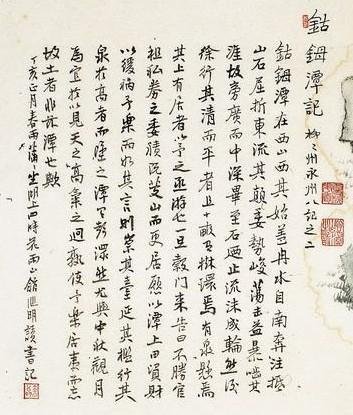 鈷鉧潭記 柳柳州永州八記之二
鈷鉧潭在西山西其始蓋冉水自南奔注抵
山石屈折東流其顛委勢峻蕩擊益暴嚙其
涯故旁廣而中深畢至石乃止流沫成輪然後
徐行其清而平者且十畝有樹環焉有泉懸焉
其上有居者以予之亟游也一旦款門來告曰不勝官
租私券之委積既芟山而更居願以潭上田貿財
以緩禍予樂而如其言則崇其臺延其檻行其
泉於高者而墜之潭有聲潀然尤與中秋觀月
為宜於以見天之高氣之迥孰使予樂居夷而忘
故土者非茲潭也歟
丁亥正月春雨 坐明上四時花雨山館 明 書記